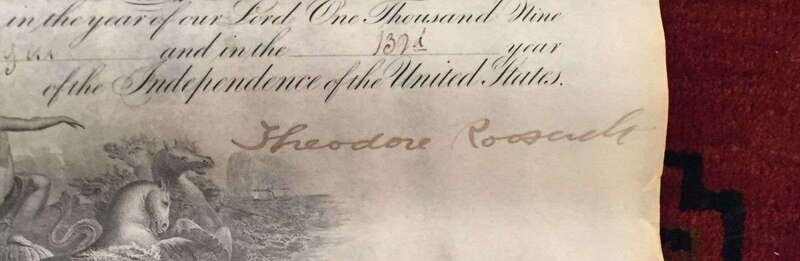 in the year of our Lord One Thousand Nine
and in the 132d year
of the Independence of the United States.
Theodore Roosevelt